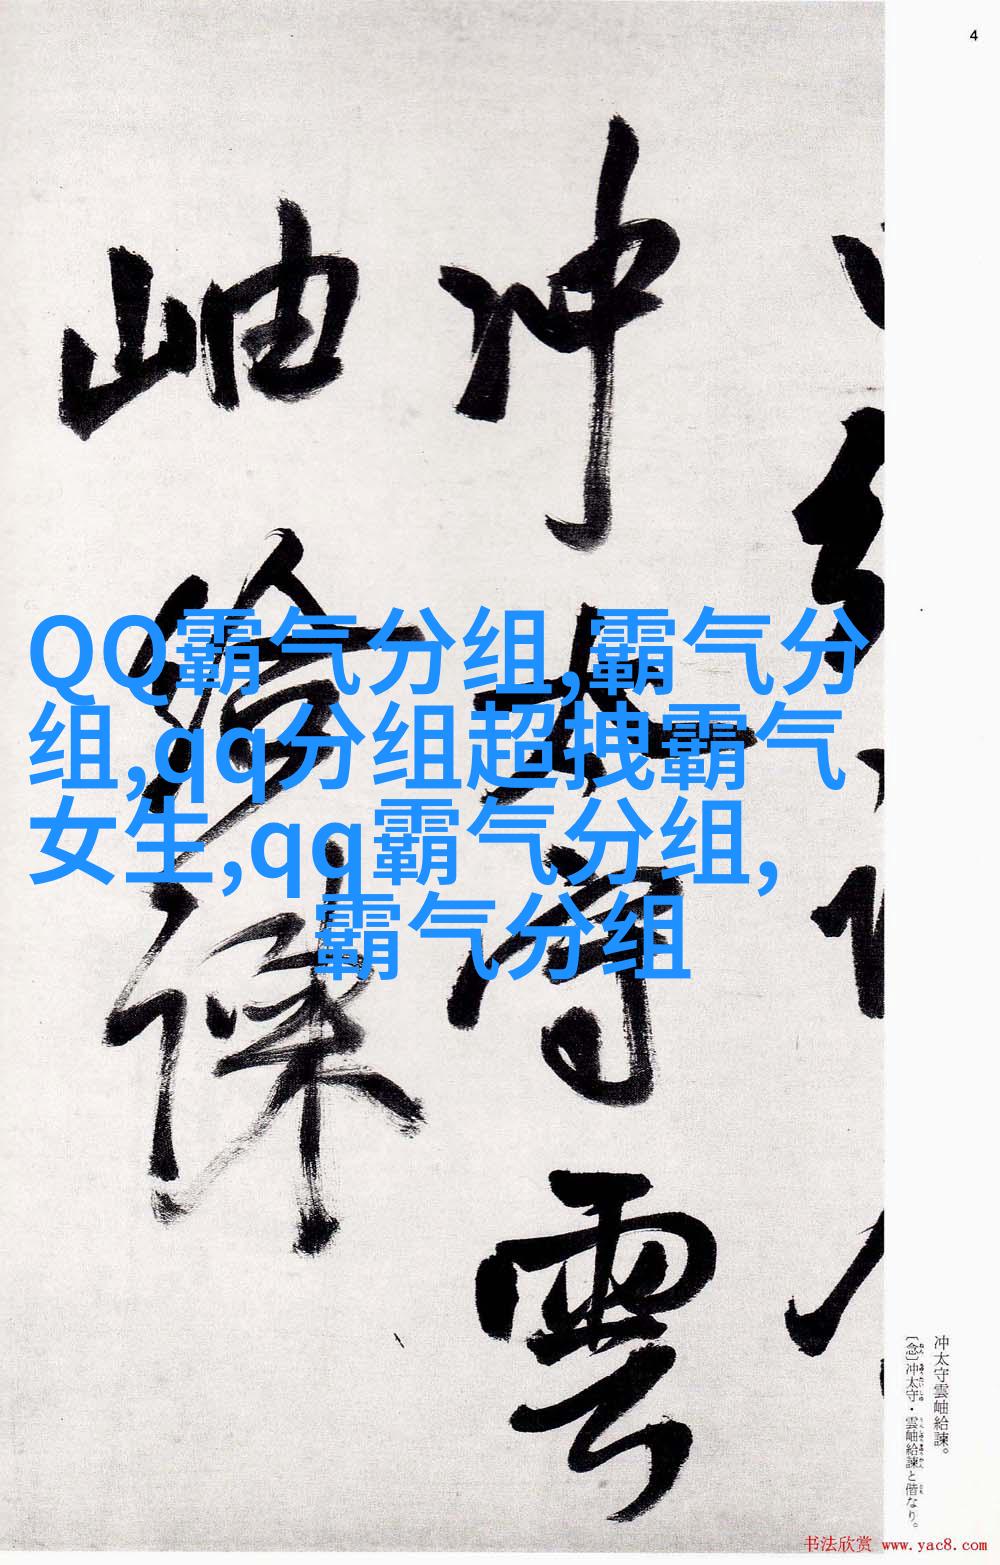 4
冲太守雲
岫給諫
QQ霸气分组,霸气分
组,qq分组超拽霸气
女生,qq霸气分组,
霸气分组
冲太守雲岫給諫。
〔念〕冲太守・雲岫給諫と偕なり。
书法欣赏 www.yac8.com